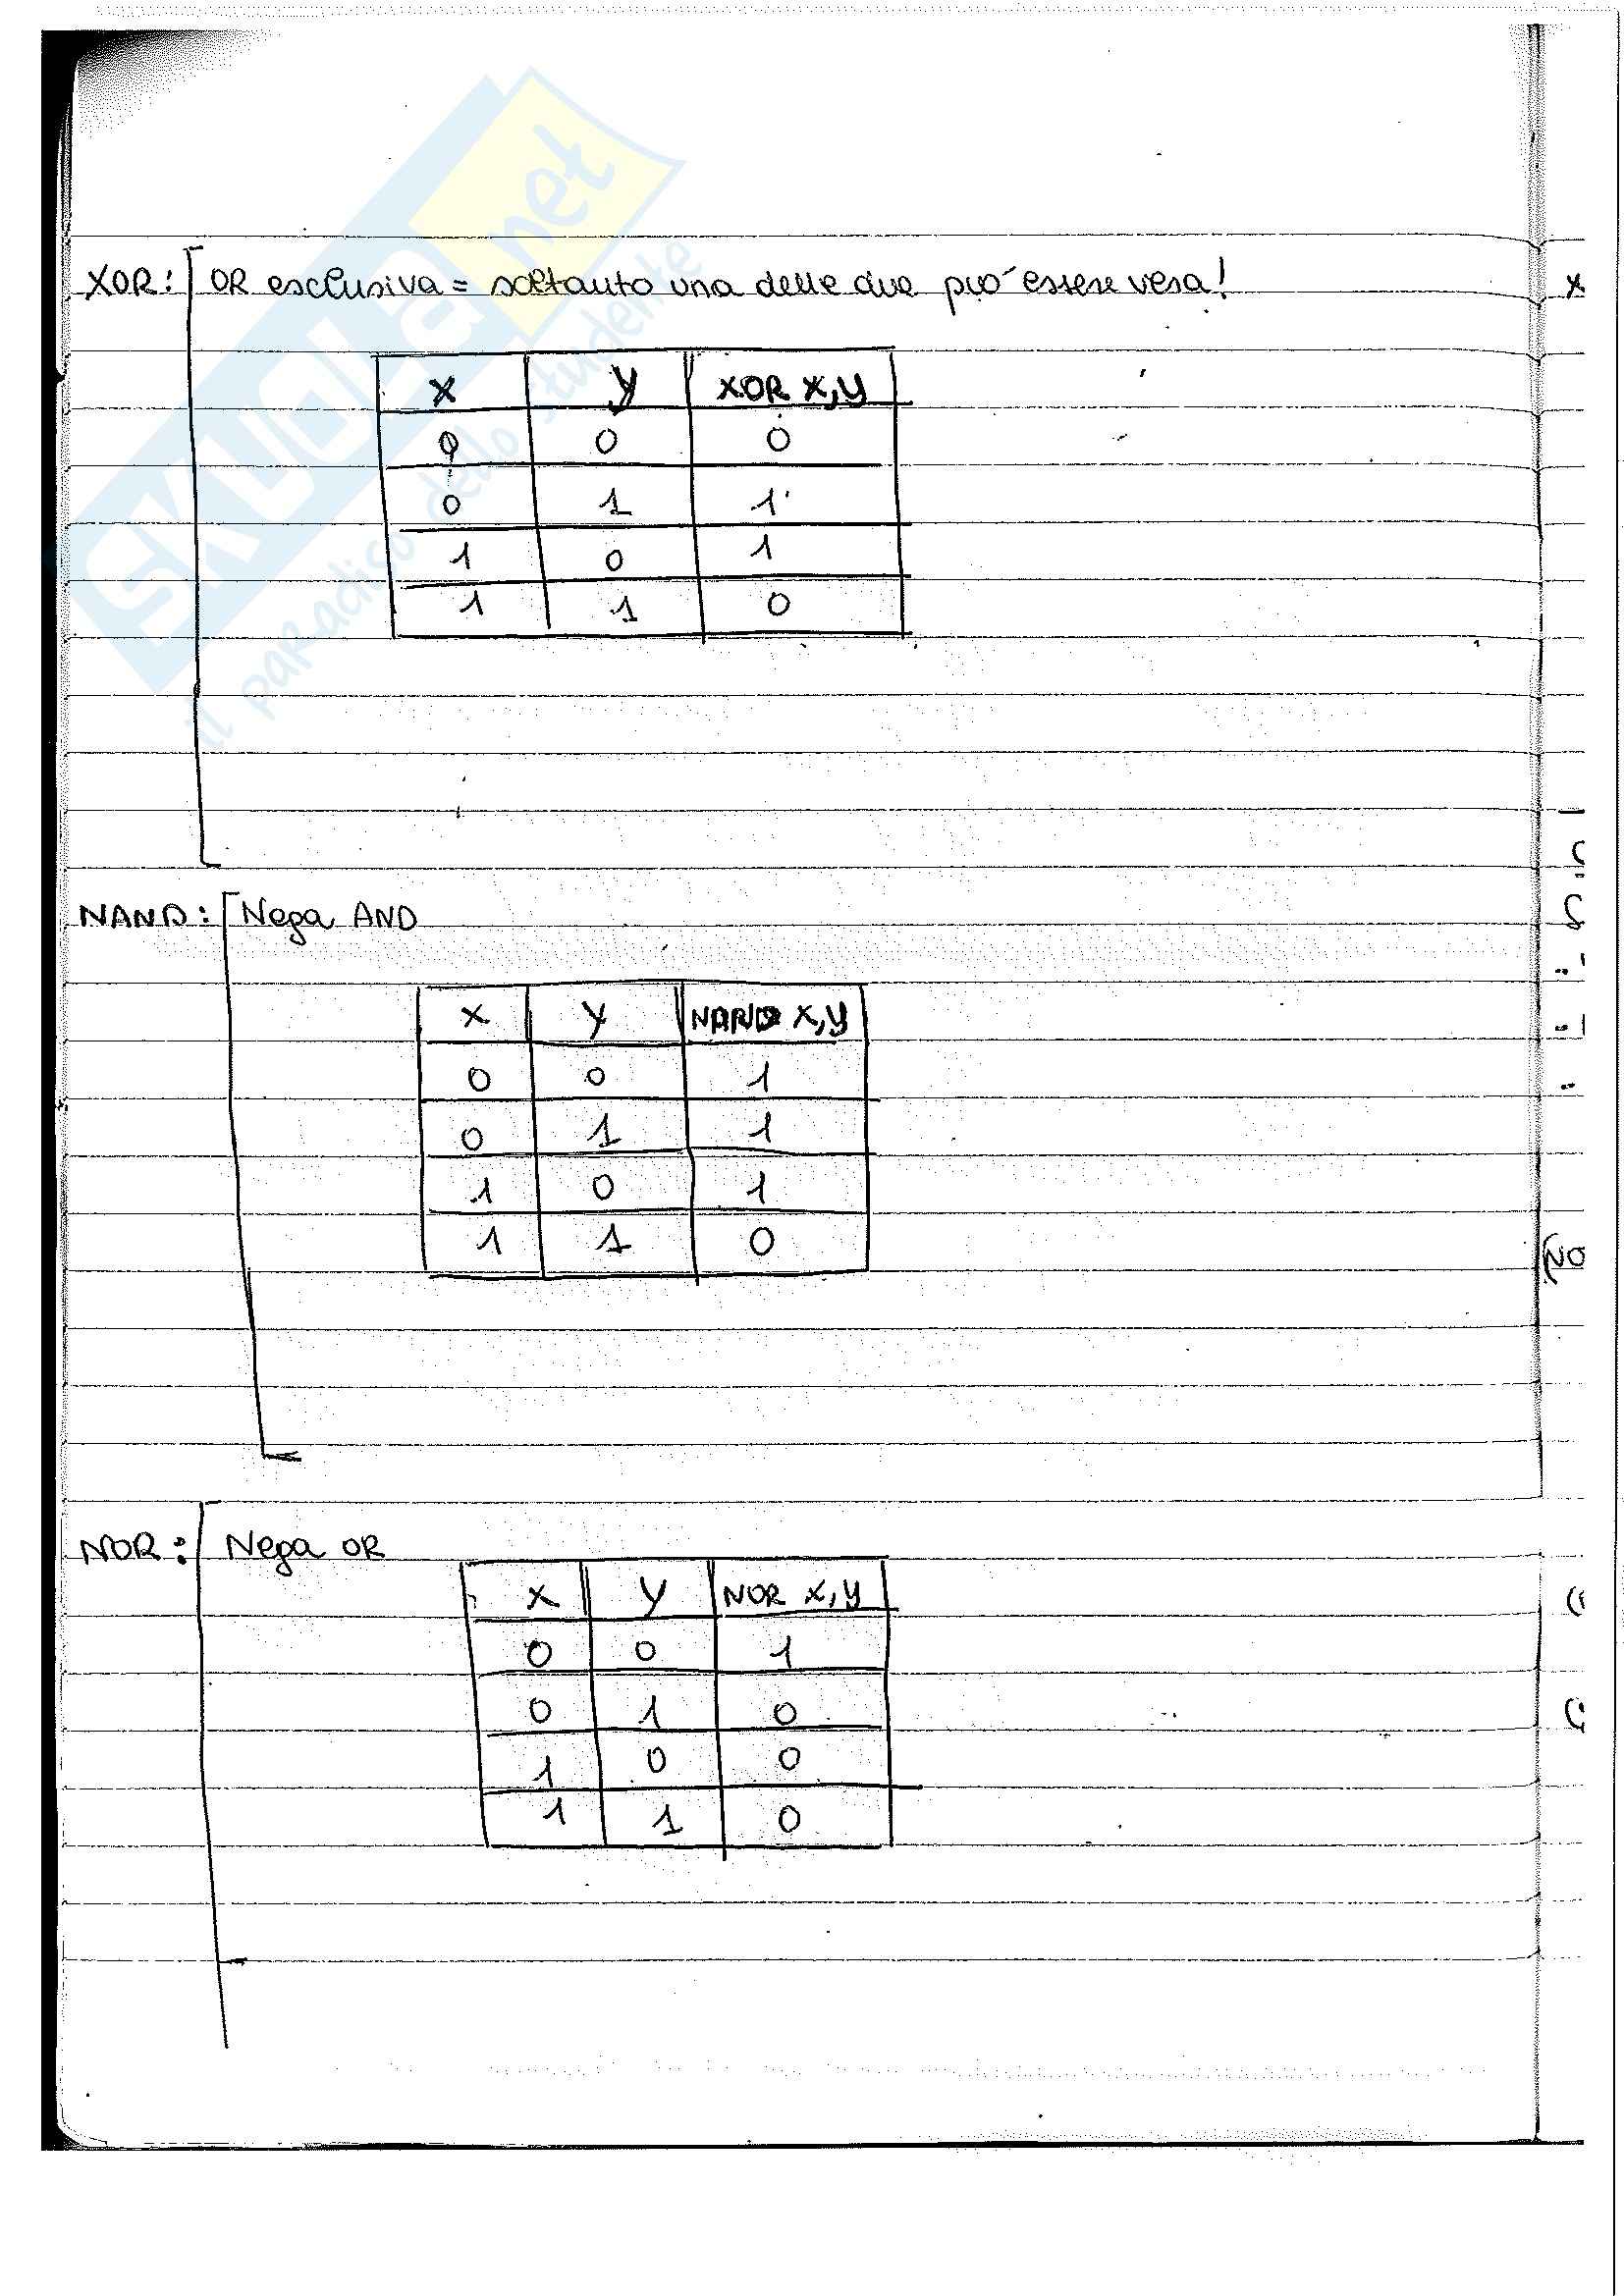 SKUOLA.net
il paradiso dello studente
XOR: OR esclusiva = soltanto una delle due può essere vera!
X Y XOR X,Y
0 0 0
0 1 1
1 0 1
1 1 0
NAND: Nega AND
X Y NAND X,Y
0 0 1
0 1 1
1 0 1
1 1 0
NOR: Nega OR
X Y NOR X,Y
0 0 1
0 1 0
1 0 0
1 1 0